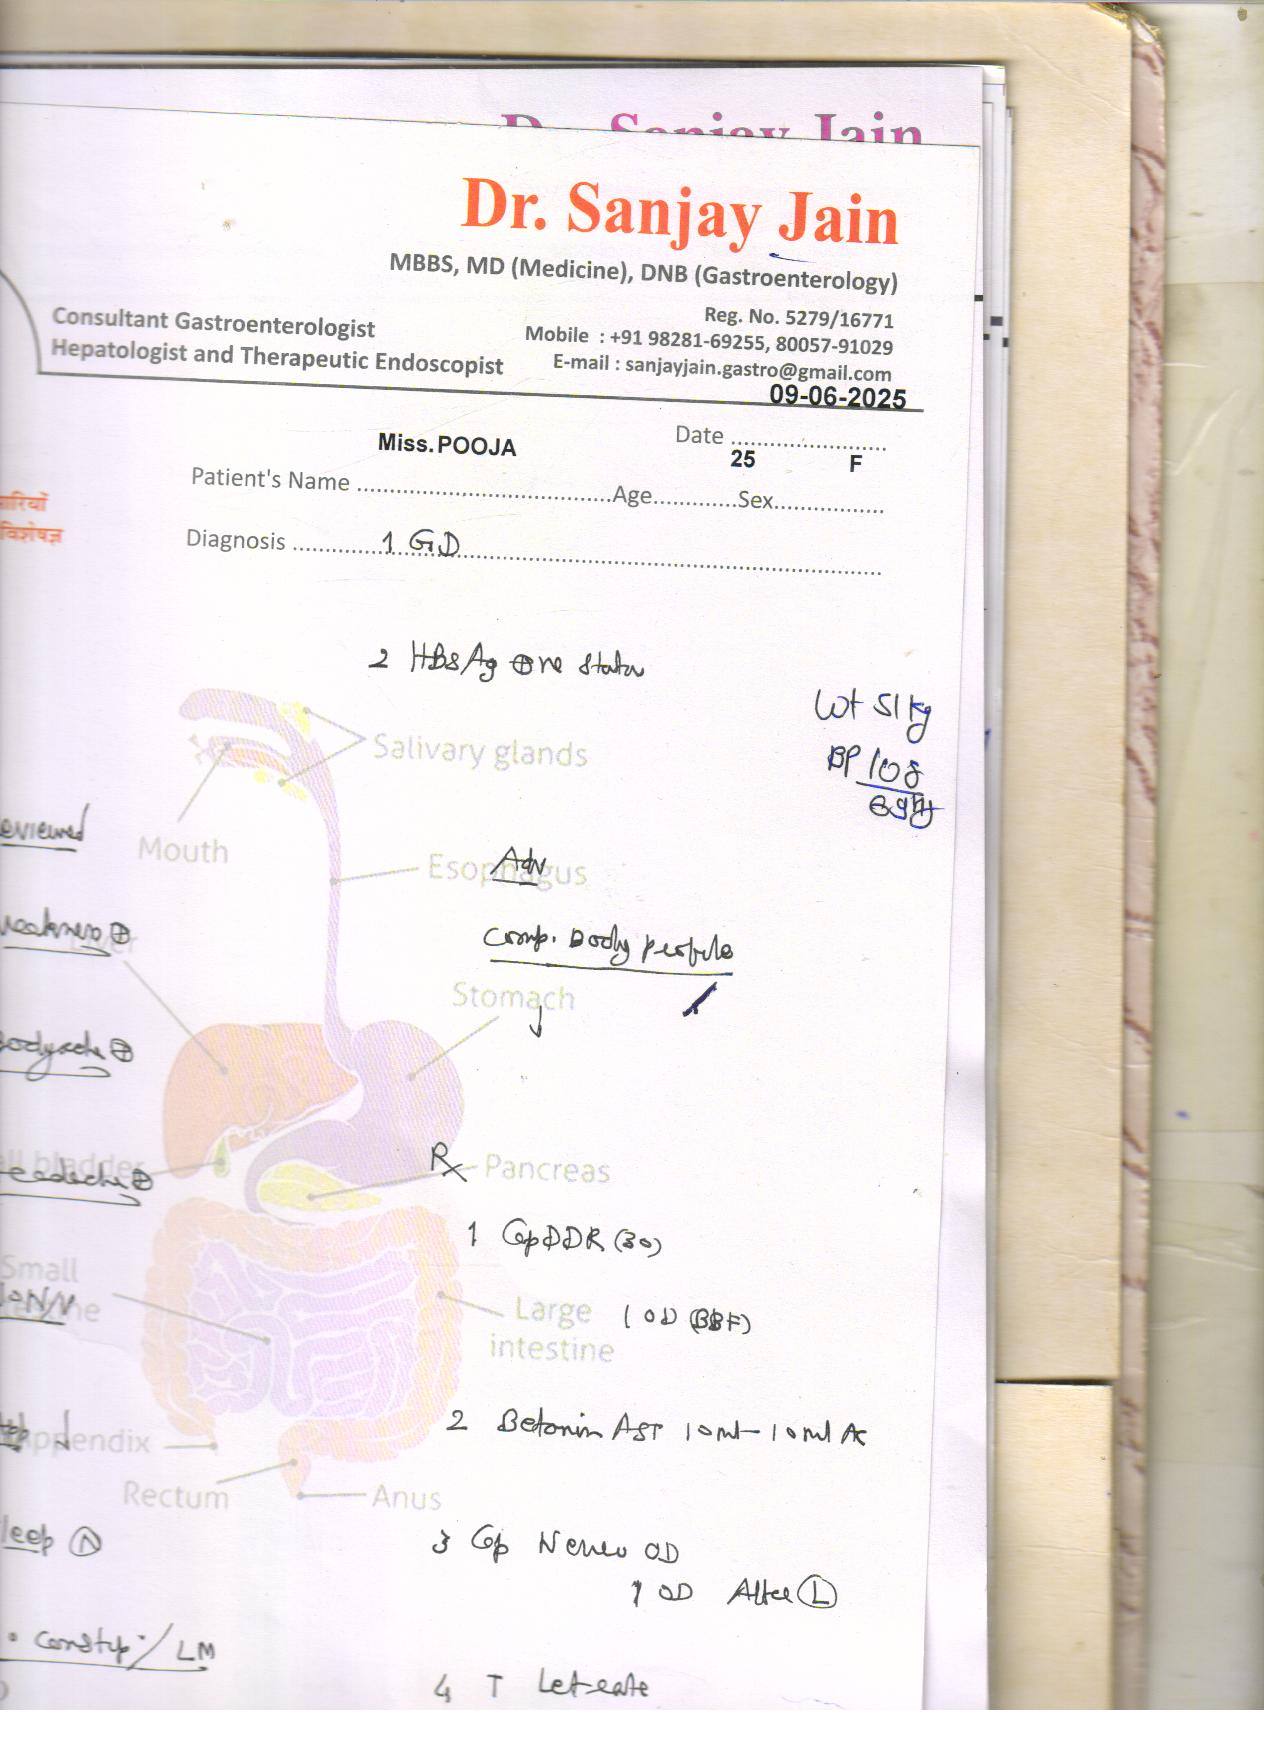 Dr. Sanjay Jain
Dr. Sanjay Jain
MBBS, MD (Medicine), DNB (Gastroenterology)
Consultant Gastroenterologist
Hepatologist and Therapeutic Endoscopist
Reg. No. 5279/16771
Mobile : +91 98281-69255, 80057-91029
E-mail : sanjayjain.gastro@gmail.com
09-06-2025
Date
Miss.POOJA 25 F
Patient's Name Age Sex
विशेषज्ञ
Diagnosis 1 GD
2 HBsAg ⊕ve status
Wt 51 kg
BP 108
Salivary glands
Mouth
Esophagus
Adv
eviewed
Comp. Body profile
weakness ⊕
Liver
Stomach
bodyache ⊕
↓
Rx
Pancreas
ll bladder
eadache ⊕
1 Cap DDR (30)
Small
Large
intestine
1 OD (BBF)
N/V
2 Betonin AST 10ml - 10ml
Appendix
Rectum
Anus
leep Ⓝ
3 Cap OD
1 OD After Ⓛ
constip / LM
4 T